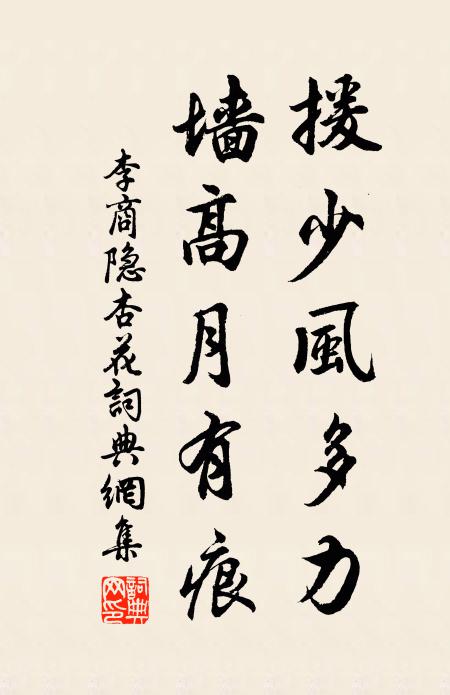 援少風多力
墙高月有痕
李商隐杏花詞典網集
詞典网印